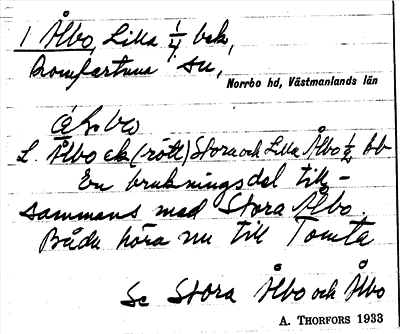 1 Ålbo, Lilla 1/4 bek,
Romfartuna sn,
Norrbo hd, Västmanlands län
å2bω
L. Ålbo ek (rött) Stora och Lilla Ålbo 1/2 bb
En brukningsdel till-
sammans med Stora Ålbo
Båda höra nu till Tomta
Se Stora Ålbo och Ålbo
A. THORFORS 1933